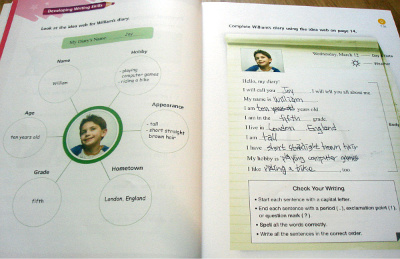 Developing Writing Skills
Look at the idea web for William's diary.
My Diary's Name: Joy
Name
William
Hobby
- playing
computer games
- riding a bike
Age
ten years old
Appearance
- tall
- short straight
brown hair
Grade
fifth
Hometown
London, England
Complete William's diary using the idea web on page 14.
Wednesday, March 12
Date
Weather
Hello, my diary!
I will call you Joy. I will tell you all about me.
My name is William
I am ten years old.
I am in the fifth grade.
I live in London England
I am tall
I have short straight brown hair
My hobby is playing computer games
I like riding a bike, too.
Body
Check Your Writing
• Start each sentence with a capital letter.
• End each sentence with a period (.), exclamation point (!),
or question mark (?).
• Spell all the words correctly.
• Write all the sentences in the correct order.